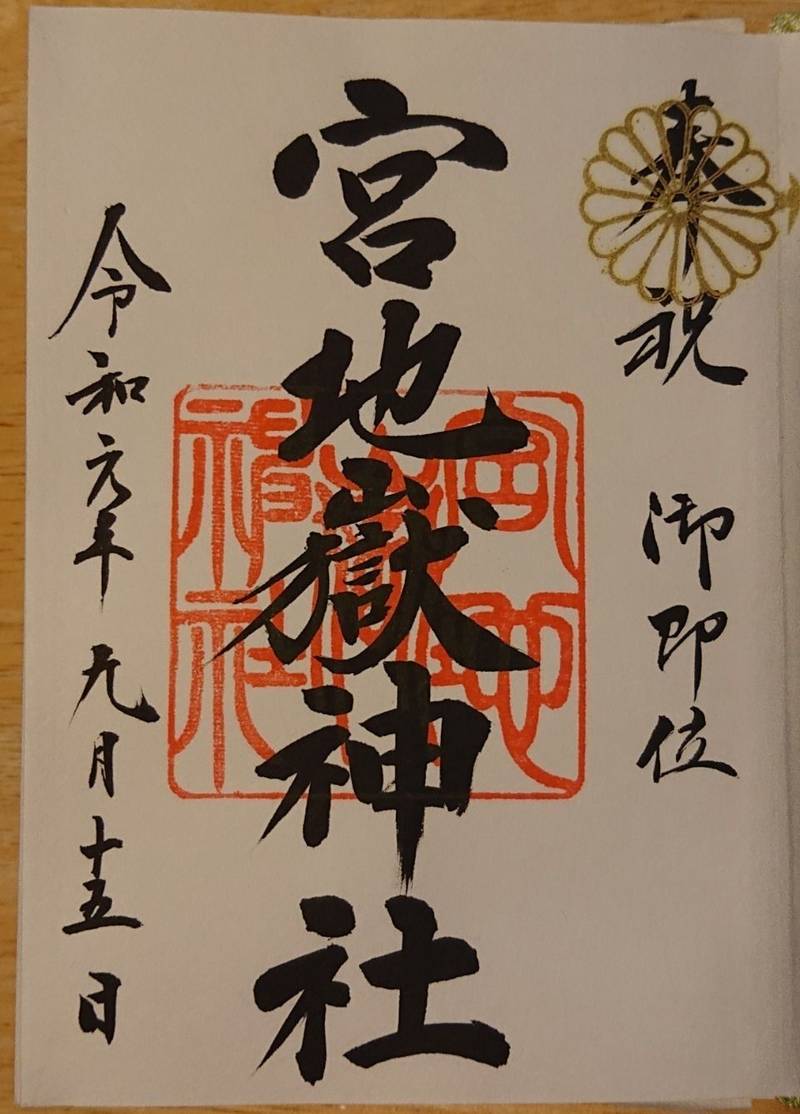 奉祝 御即位
宮地嶽神社
令和元年九月十五日
宮地嶽神社